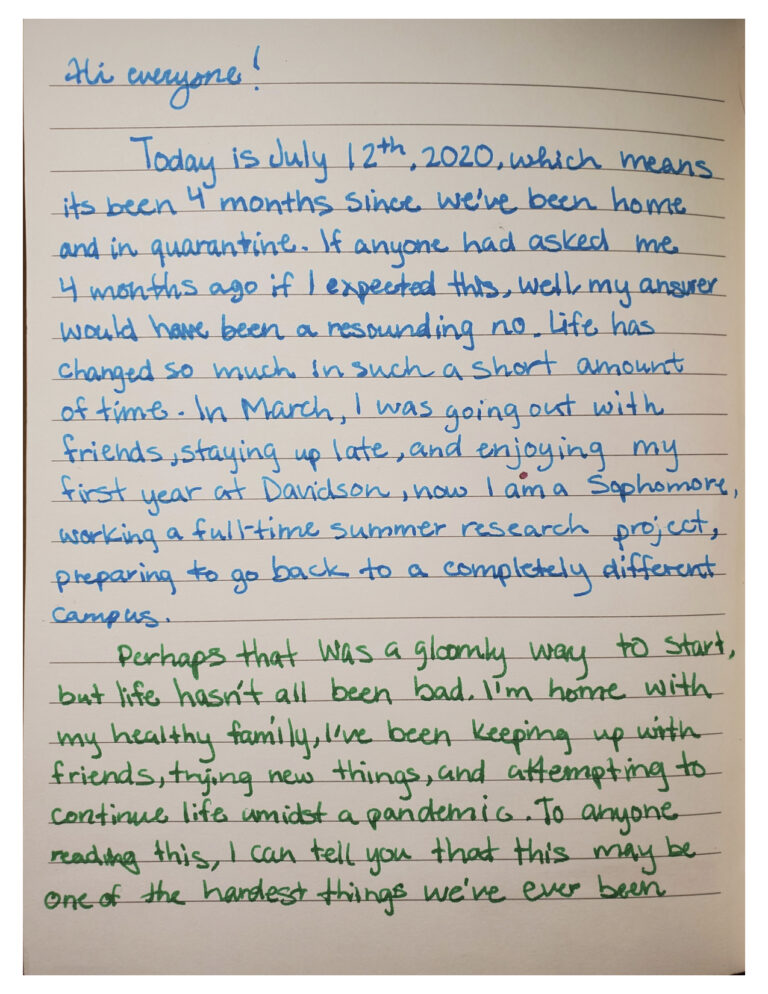 Hi everyone!
Today is July 12th, 2020, which means
its been 4 months since we've been home
and in quarantine. If anyone had asked me
4 months ago if I expected this, well, my answer
would have been a resounding no. Life has
changed so much in such a short amount
of time. In March, I was going out with
friends, staying up late, and enjoying my
first year at Davidson, now I am a Sophomore,
working a full-time summer research project,
preparing to go back to a completely different
campus.
Perhaps that was a gloomly way to start,
but life hasn't all been bad. I'm home with
my healthy family, I've been keeping up with
friends, trying new things, and attempting to
continue life amidst a pandemic. To anyone
reading this, I can tell you that this may be
one of the hardest things we've ever been